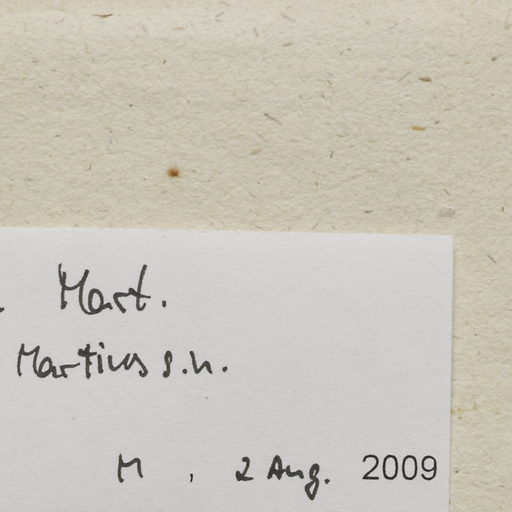 . Mart.
Martius s.n.
M , 2 Aug. 2009